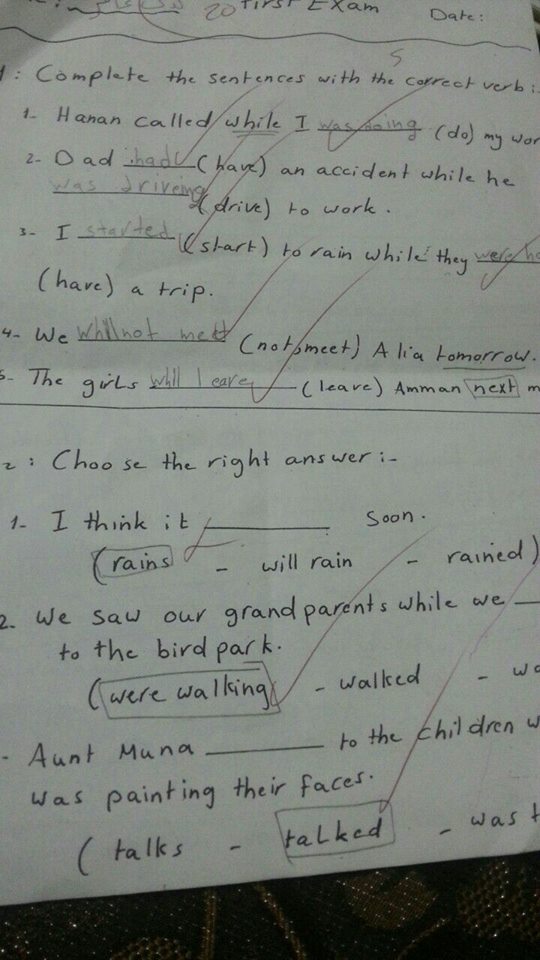 20 First Exam
Date:
5
1: Complete the sentences with the correct verb:-
1- Hanan called while I was doing (do) my wor
2- Dad had (have) an accident while he
was driveing (drive) to work.
3- I started (start) to rain while they were ha
(have) a trip.
4- We whill not meet (not, meet) Alia tomorrow.
5- The girls whill leave (leave) Amman next m
2: Choose the right answer:-
1- I think it ________ soon.
(rains - will rain - rained)
2. We saw our grandparents while we __
to the bird park.
(were walking - walked - wa
- Aunt Muna ________ to the children w
was painting their faces.
( talks - talked - was t